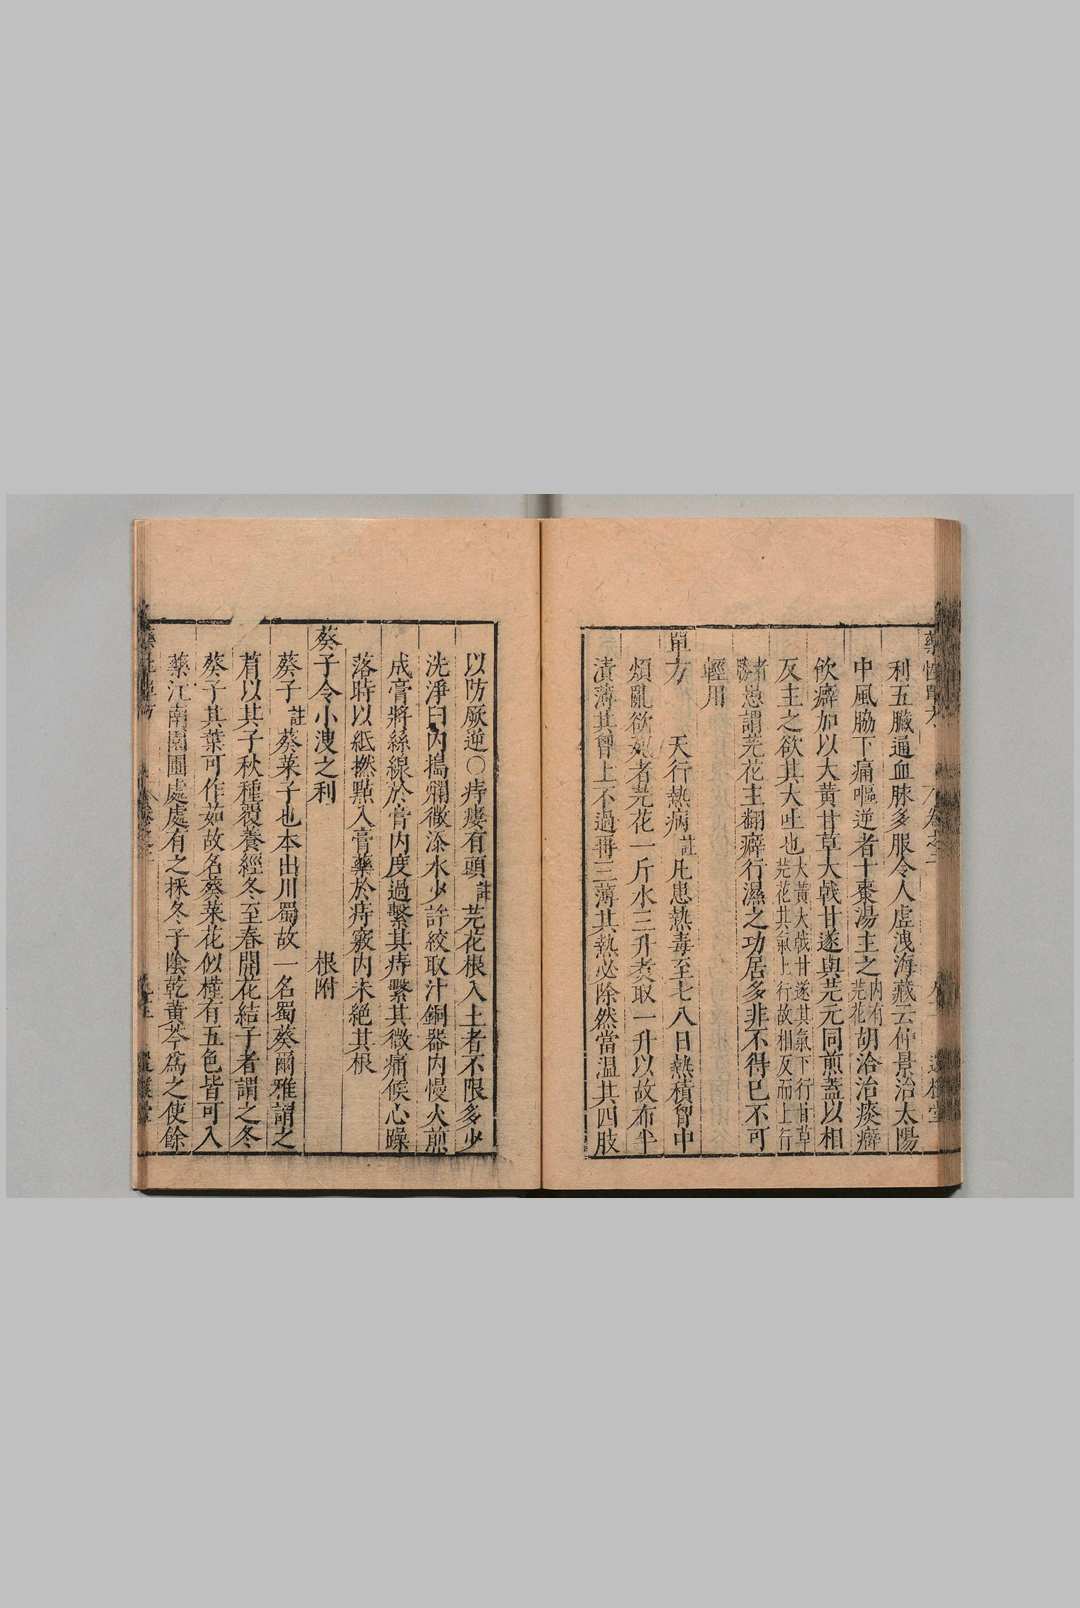 利五臟通血脉多服令人虛洩海藏云仲景治太陽
中風脇下痛嘔逆者十棗湯主之內有芫花胡洽治痰癖
飲癖加以大黃甘草大戟甘遂與芫元同煎蓋以相
反主之欲其大吐也大黃大戟甘遂其氣下行甘草芫花其氣上行故相反而上行
者患謂芫花主翻癖行濕之功居多非不得已不可
輕用
單方　天行熱病註凡患熱毒至七八日熱積胷中
煩亂欲死者芫花一斤水三升煑取一升以故布半
漬薄其胷上不過再三薄其熱必除然當溫其四肢
以防厥逆○痔瘻有頭註芫花根入土者不限多少
洗淨臼內搗爛微添水少許絞取汁銅器內慢火煎
成膏將絲線於膏內度過繫其痔繫其微痛候心躁
落時以紙撚點入膏藥於痔竅內未絕其根
葵子令小洩之利　根附
葵子註葵菜子也本出川蜀故一名蜀葵爾雅謂之
菺以其子秋種覆養經冬至春開花結子者謂之冬
葵子其葉可作茹故名葵菜花似槿有五色皆可入
藥江南園圃處處有之採冬子陰乾黃芩爲之使餘